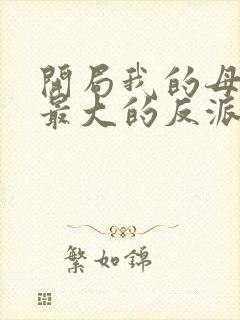 開局我的母
最大的反派
繁如錦